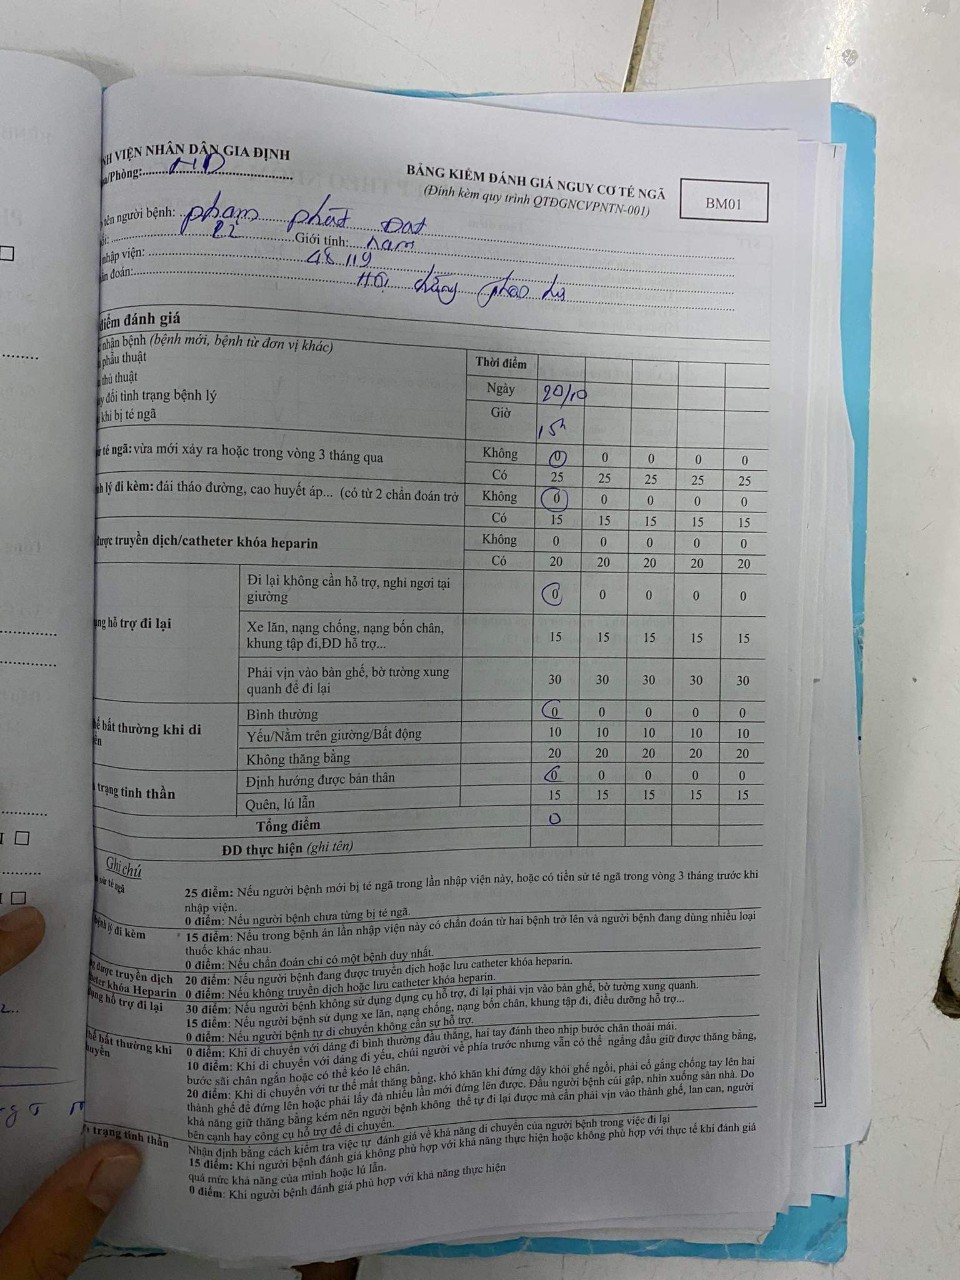 NH VIỆN NHÂN DÂN GIA ĐỊNH
/Phòng:
BẢNG KIỂM ĐÁNH GIÁ NGUY CƠ TÉ NGÃ
(Đính kèm quy trình QTĐGNCVPNTN-001)
BM01
tên người bệnh: phạm phát Đạt
22 Giới tính: nam
nhập viện: 48 119
đoán:
điểm đánh giá
nhận bệnh (bệnh mới, bệnh từ đơn vị khác)
phẫu thuật
thủ thuật
đổi tình trạng bệnh lý
khi bị té ngã
Thời điểm
Ngày 20/10
Giờ 15h
té ngã: vừa mới xảy ra hoặc trong vòng 3 tháng qua
Không 0 0 0 0 0
Có 25 25 25 25 25
lý đi kèm: đái tháo đường, cao huyết áp... (có từ 2 chẩn đoán trở
Không 0 0 0 0 0
Có 15 15 15 15 15
được truyền dịch/catheter khóa heparin
Không 0 0 0 0 0
Có 20 20 20 20 20
hỗ trợ đi lại
Đi lại không cần hỗ trợ, nghỉ ngơi tại giường 0 0 0 0 0
Xe lăn, nạng chống, nạng bốn chân,
khung tập đi,ĐD hỗ trợ... 15 15 15 15 15
Phải vịn vào bàn ghế, bờ tường xung
quanh để đi lại 30 30 30 30 30
bất thường khi di
Bình thường 0 0 0 0 0
Yếu/Nằm trên giường/Bất động 10 10 10 10 10
Không thăng bằng 20 20 20 20 20
trạng tinh thần
Định hướng được bản thân 0 0 0 0 0
Quên, lú lẫn 15 15 15 15 15
Tổng điểm 0
ĐD thực hiện (ghi tên)
Ghi chú
sử té ngã
25 điểm: Nếu người bệnh mới bị té ngã trong lần nhập viện này, hoặc có tiền sử té ngã trong vòng 3 tháng trước khi
nhập viện.
0 điểm: Nếu người bệnh chưa từng bị té ngã
bệnh lý đi kèm
15 điểm: Nếu trong bệnh án lần nhập viện này có chẩn đoán từ hai bệnh trở lên và người bệnh đang dùng nhiều loại
thuốc khác nhau.
0 điểm: Nếu chẩn đoán chỉ có một bệnh duy nhất.
được truyền dịch
20 điểm: Nếu người bệnh đang được truyền dịch hoặc lưu catheter khóa heparin.
khóa Heparin
0 điểm: Nếu không truyền dịch hoặc lưu catheter khóa heparin.
hỗ trợ đi lại
30 điểm: Nếu người bệnh không sử dụng dụng cụ hỗ trợ, đi lại phải vịn vào bàn ghế, bờ tường xung quanh.
15 điểm: Nếu người bệnh sử dụng xe lăn, nạng chống, nạng bốn chân, khung tập đi, điều dưỡng hỗ trợ...
0 điểm: Nếu người bệnh tự di chuyển không cần sự hỗ trợ.
bất thường khi
0 điểm: Khi di chuyển với dáng đi bình thường đầu thẳng, hai tay đánh theo nhịp bước chân thoải mái.
10 điểm: Khi di chuyển với dáng đi yếu, chúi người về phía trước nhưng vẫn có thể ngẩng đầu giữ được thăng bằng,
bước sãi chân ngắn hoặc có thể kéo lê chân.
20 điểm: Khi di chuyển với tư thế mất thăng bằng, khó khăn khi đứng dậy khỏi ghế ngồi, phải cố gắng chống tay lên hai
thành ghế để đứng lên hoặc phải lấy đà nhiều lần mới đứng lên được. Đầu người bệnh cúi gập, nhìn xuống sàn nhà. Do
khả năng giữ thăng bằng kém nên người bệnh không thể tự đi lại được mà cần phải vịn vào thành ghế, lan can, người
bên cạnh hay công cụ hỗ trợ để di chuyển.
trạng tinh thần
Nhận định bằng cách kiểm tra việc tự đánh giá về khả năng di chuyển của người bệnh trong việc đi lại
15 điểm: Khi người bệnh đánh giá không phù hợp với khả năng thực hiện hoặc không phù hợp với thực tế khi đánh giá
quá mức khả năng của mình hoặc lú lẫn.
0 điểm: Khi người bệnh đánh giá phù hợp với khả năng thực hiện